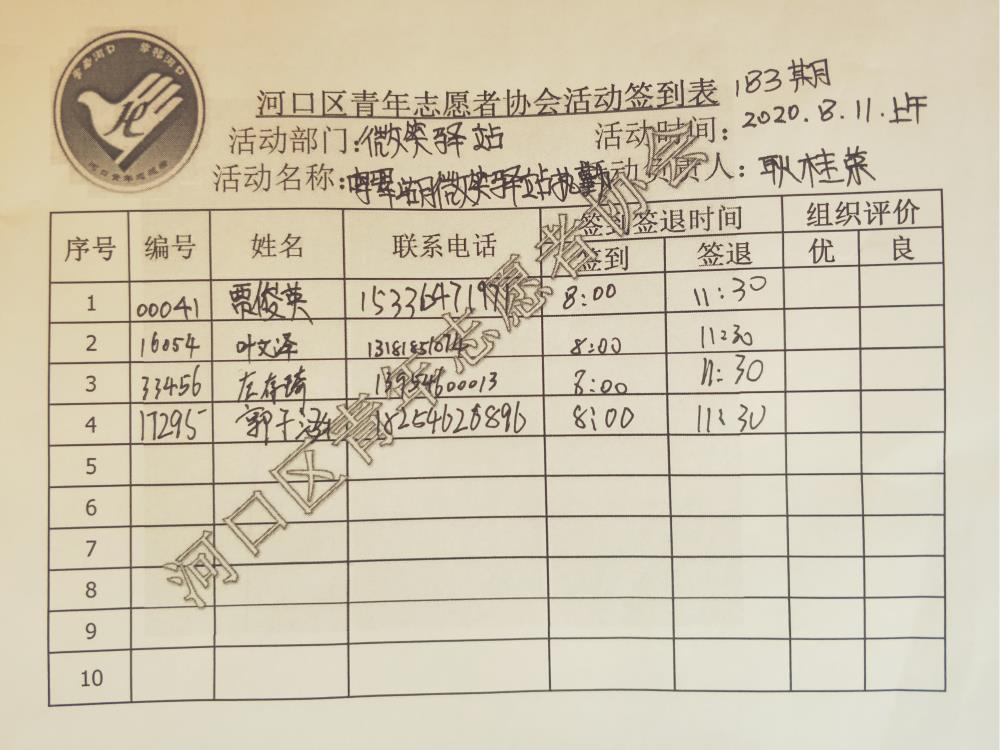 河口区青年志愿者协会活动签到表 183期
活动部门:微笑驿站 活动时间: 2020.8.11.上午
活动名称: 湖微笑驿站执勤 活动负责人: 耿桂荣
序号 编号 姓名 联系电话 签到签退时间 组织评价
签到 签退 优 良
1 00041 贾俊英 8:00 11:30
2 16054 叶文泽 8:00 11:30
3 33456 左存琦 13954600013 8:00 11:30
4 17295 郭于涵 18254626896 8:00 11:30
5
6
7
8
9
10
河口区青年志愿者协会
河口青年志愿者